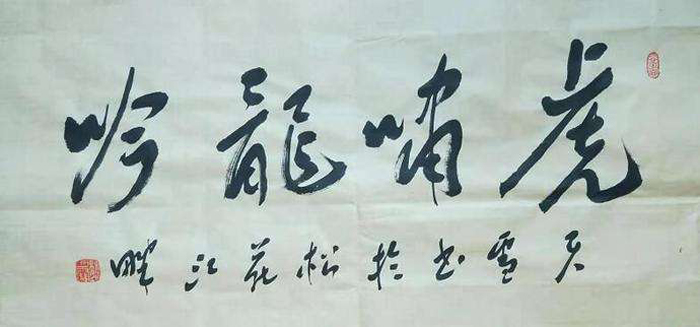 虎啸龍吟
天雪书於松花江畔